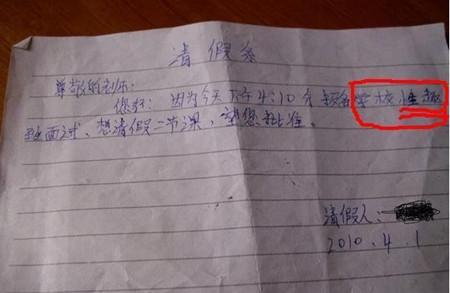 请假条
尊敬的老师:
您好: 因为今天下午4:10分 报名学校性趣
班面试、想请假二节课,望您批准。
请假人:
2010.4.1